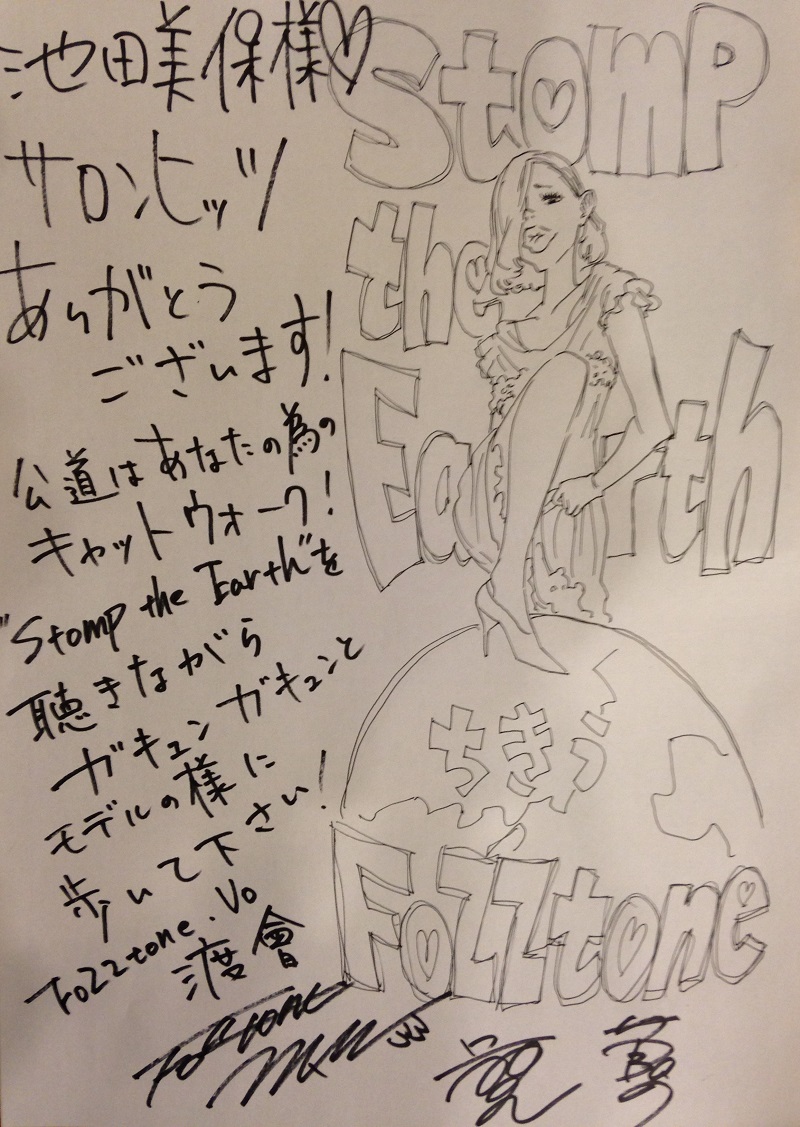 池田美保様♡
サロンヒッツ
ありがとう
ございます!
公道はあなたの為の
キャットウォーク!
"Stomp the Earth"を
聴きながら
ガキュンガキュンと
モデルの様に
歩いて下さい!
FoZZtone.Vo
渡會
Stomp
the
Earth
ちきう
FoZZtone
FoZZtone